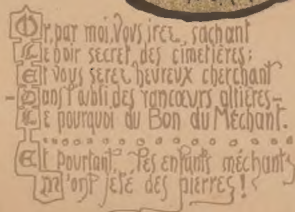 Or, par moi, Vous irez, sachant
Le Noir secret des cimetières;
Et Vous serez heureux cherchant
- Dans l'oubli des rancœurs altières -
Le pourquoi du Bon du Méchant.
Et pourtant, les enfants méchants
M'ont jeté des pierres!